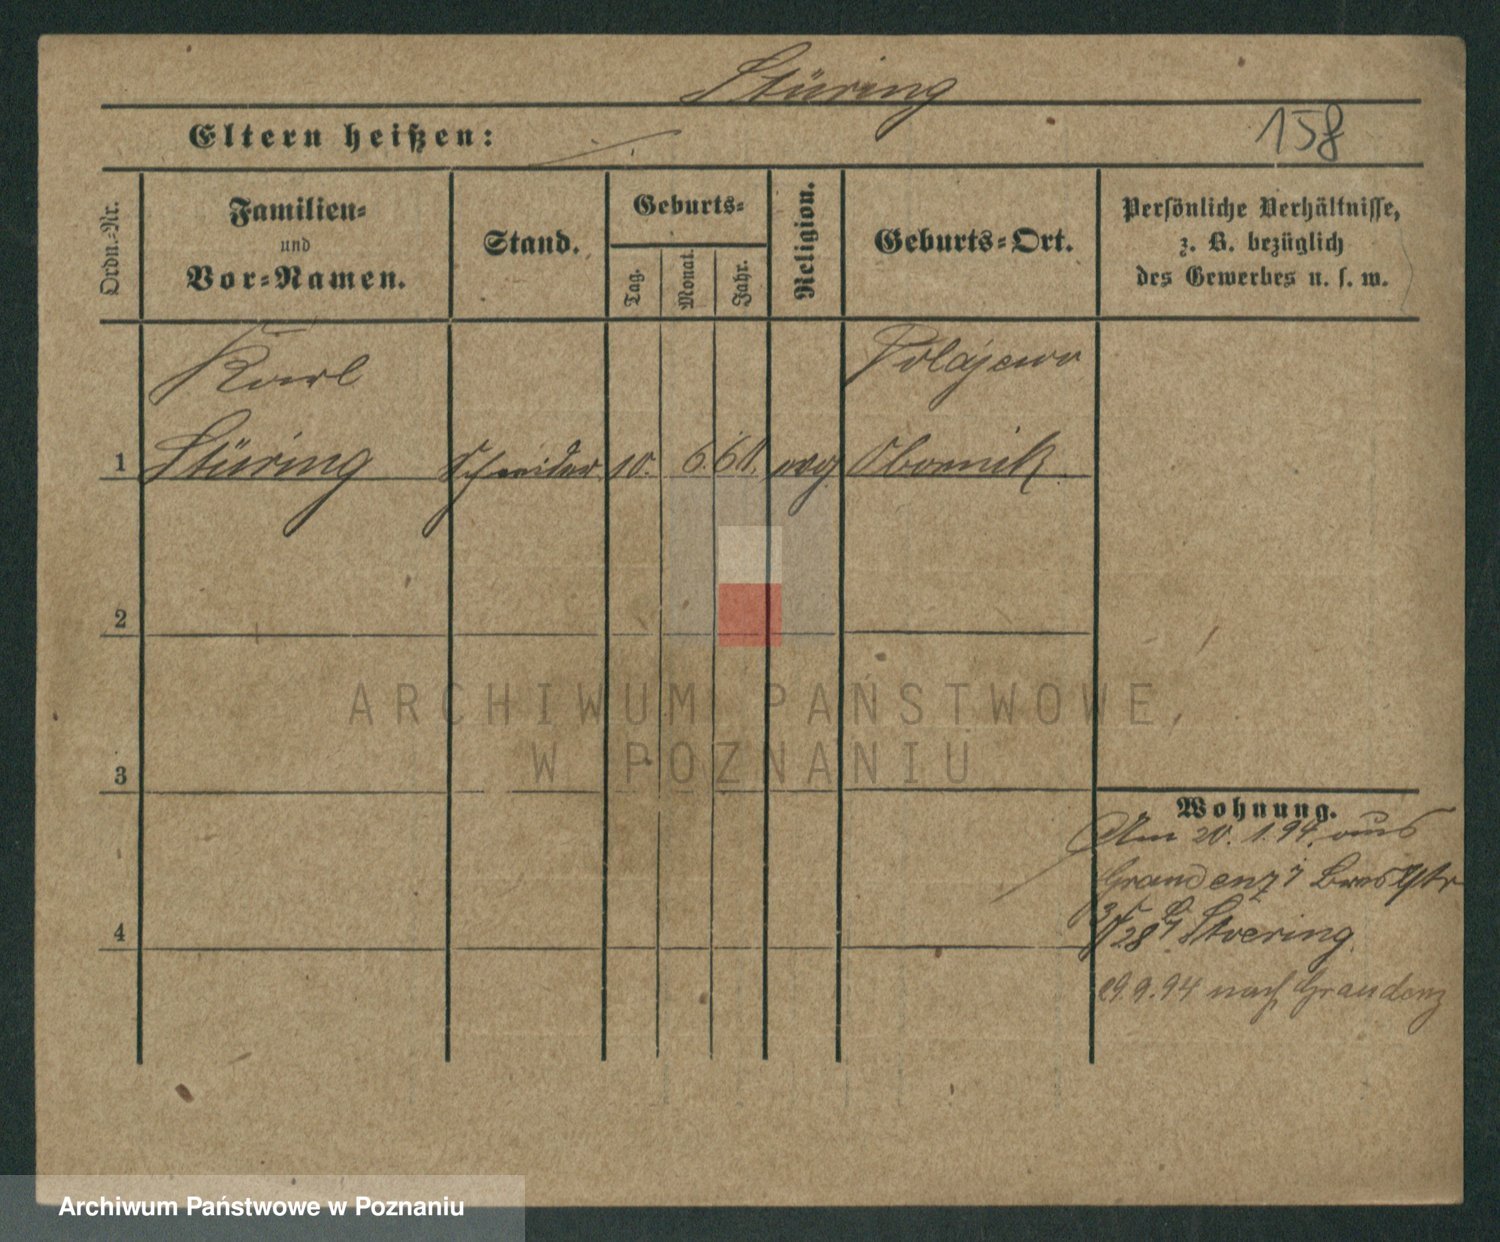 Stüring
Eltern heißen:
158
Ordn.-Nr.
Familien-
und
Vor-Namen.
Stand.
Geburts-
Tag.
Monat.
Jahr.
Religion.
Geburts-Ort.
Persönliche Verhältnisse,
z. B. bezüglich
des Gewerbes u. s. w.
Karl
Polajewo
1 Stüring Schneider 10. 6. 60. evg Obornik
2
3
4
Wohnung.
Am 20. 1. 94. aus
Graudenz
28 Stoering
29.9.94 nach Graudenz
ARCHIWUM PAŃSTWOWE
W POZNANIU
Archiwum Państwowe w Poznaniu